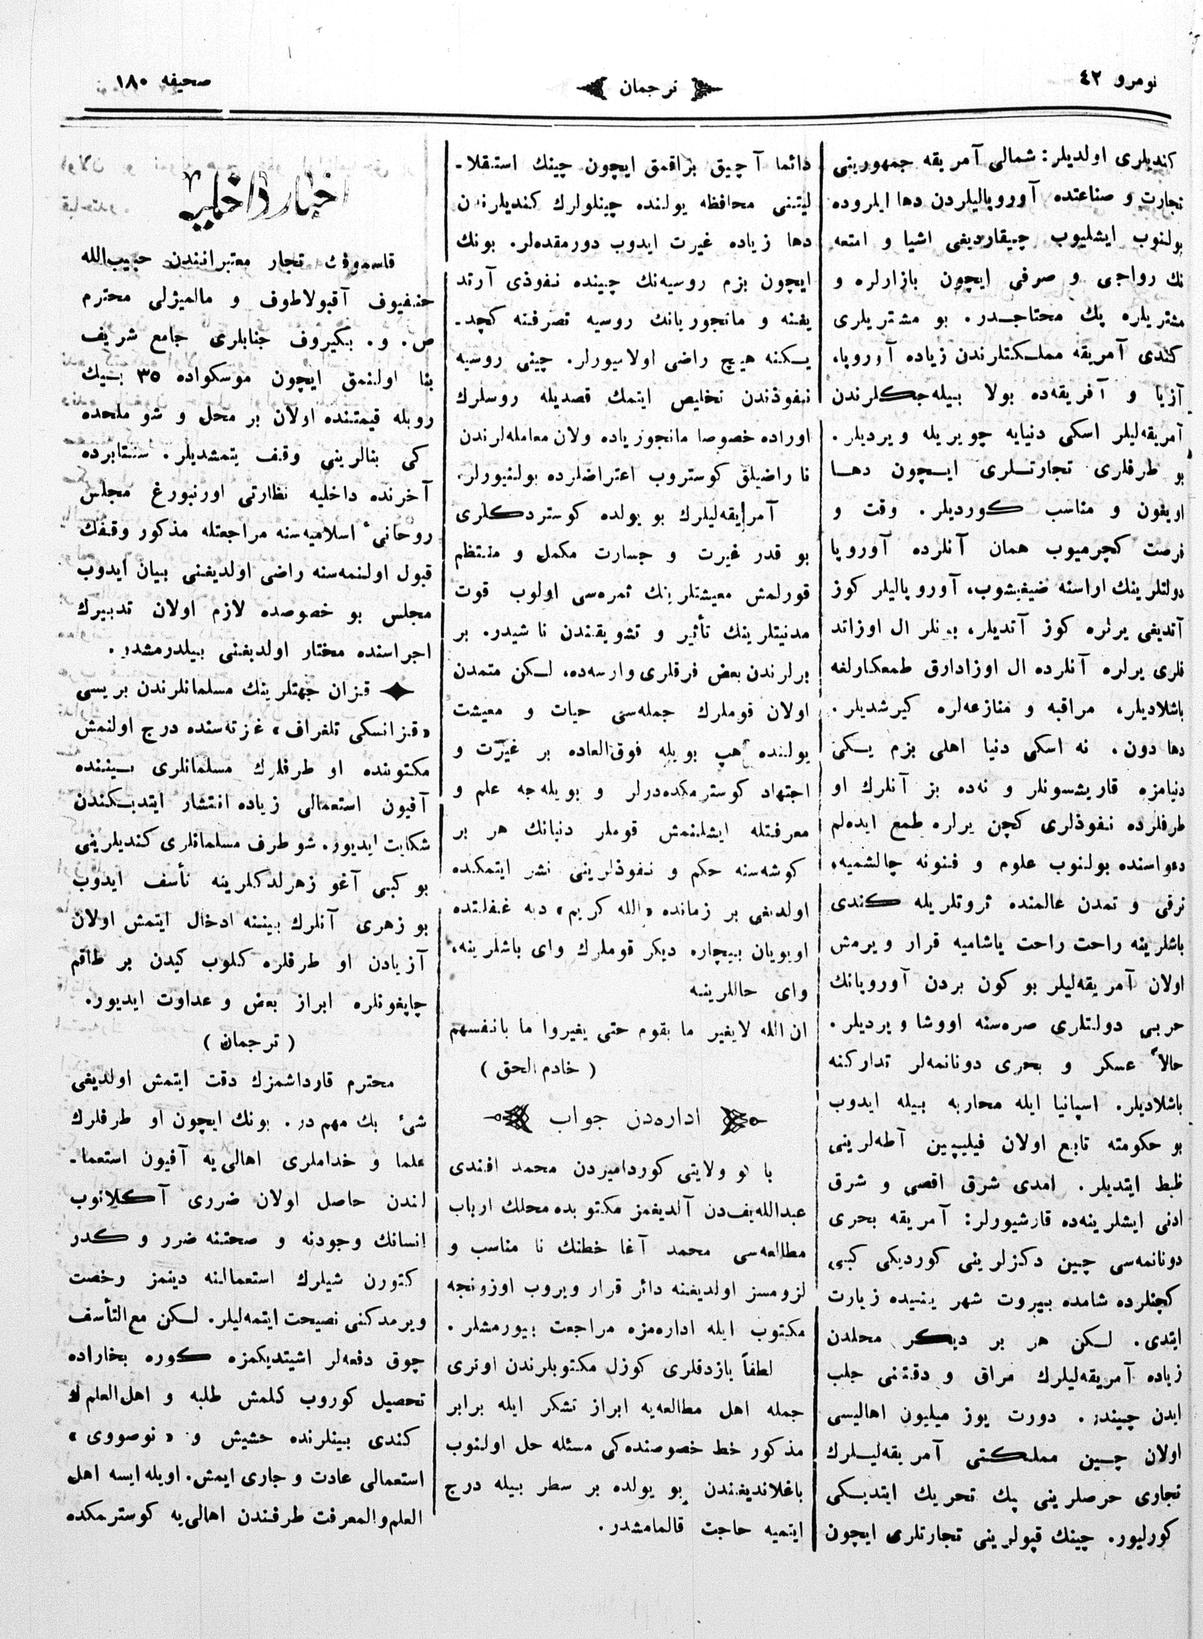 نومرو ٤٢
ترجمان
صحيفه ١٨٠
كنديلرى اولديلر: شمالى آمريقه جمهوريتى
تجارت و صناعتده آوروپاليلردن دها ايلروده
بولنوب ايشليوب چيقارديغى اشيا و امتعه
نك رواجى و صرفى ايچون بازارلره و
مشتريلره پك محتاجدر. بو مشتريلرى
كندى آمريقه مملكتلرندن زياده آوروپا،
آزيا و آفريقه‌ده بولا بيله‌جكلرندن
آمريقه‌ليلر اسكى دنيايه چويريله ويرديلر.
بو طرفلرى تجارتلرى ايچون دها
اويغون و مناسب كورديلر. وقت و
فرصت كچرميوب همان آنلرده آوروپا
دولتلرينك اراسنه ضيغيشوب، آوروپاليلر كوز
آتديغى يرلره كوز آتديلر، بونلر ال اوزاتد
قلرى يرلره آنلرده ال اوزادارق طمعكارلغه
باشلاديلر، مراقبه و منازعه‌لره كيرشديلر.
دها دون، نه اسكى دنيا اهلى بزم يكى
دنيامزه قاريشسونلر و نه‌ده بز آنلرك او
طرفلرده نفوذلرى كچن يرلره طمع ايده‌لم
دعواسنده بولنوب علوم و فنونه چالشميه،
ترقى و تمدن عالمنده ثروتلريله كندى
باشلرينه راحت راحت ياشاميه قرار ويرمش
اولان آمريقه‌ليلر بو كون بردن آوروپانك
حربى دولتلرى صره‌سنه اووشا ويرديلر.
حالاً عسكر و بحرى دونانمه‌لر تداركنه
باشلاديلر. اسپانيا ايله محاربه بيله ايدوب
بو حكومته تابع اولان فيليپين آطه‌لرينى
ظبط ايتديلر. امدى شرق اقصى و شرق
ادنى ايشلرينه‌ده قارشيورلر: آمريقه بحرى
دونانمه‌سى چين دكزلرينى كورديكى كبى
كچنلرده شامده بيروت شهر ينىده زيارت
ايتدى. لكن هر بر ديكر محلدن
زياده آمريقه‌ليلرك مراق و دقتنى جلب
ايدن چيندر. دورت يوز ميليون اهاليسى
اولان چين مملكتى آمريقه‌ليلرك
تجارى حرصلرينى پك تحريك ايتديكى
كورليور. چينك قپولرينى تجارتلرى ايچون
دائما آچيق براقمق ايچون چينك استقلا-
ليتنى محافظه يولنده چينلولرك كنديلرندن
دها زياده غيرت ايدوب دورمقده‌لر. بونك
ايچون بزم روسيه‌نك چينده نفوذى آرتد
يغنه و مانجوريانك روسيه تصرفنه كچد-
يكنه هيچ راضى اولاميورلر. چينى روسيه
نفوذندن تخليص ايتمك قصديله روسلرك
اوراده خصوصا مانجوزياده ولان معامله‌لرندن
نا راضيلق كوستروب اعتراضلرده بولنيورلر.
آمرايقه‌ليلرك بو يولده كوستردكلرى
بو قدر غيرت و جسارت مكمل و منتظم
قورلمش معيشتلرينك ثمره‌سى اولوب قوت
مدنيتلرينك تأثير و تشويقندن ناشيدر. بر
برلرندن بعض فرقلرى وارسه‌ده، لكن متمدن
اولان قوملرك جمله‌سى حيات و معيشت
يولنده هپ بويله فوق‌العاده بر غيرت و
اجتهاد كوسترمكده‌درلر و بويله‌جه علم و
معرفتله ايشلنمش قوملر دنيانك هر بر
كوشه‌سنه حكم و نفوذلرينى نشر ايتمكده
اولديغى بر زمانده «الله كريم» ديه غفلتده
اويويان بيچاره ديكر قوملرك واى باشلرينه،
واى حاللرينه
ان الله لايغير ما بقوم حتى يغيروا ما بانفسهم
( خادم الحق )
اداره‌دن جواب
باكو ولايتى كوردامیردن محمد افندى
عبدالله‌يف‌دن آلديغمز مكتوبده محلك ارباب
مطالعه‌سى محمد آغا خطنك نا مناسب و
لزومسز اولديغنه دائر قرار ويروب اوزونجه
مكتوب ايله اداره‌مزه مراجعت بيورمشلر.
لطفاً يازدقلرى كوزل مكتوبلرندن اوترى
جمله اهل مطالعه‌يه ابراز تشكر ايله برابر
مذكور خط خصوصنده‌كى مسئله حل اولنوب
باغلانديغندن بو يولده بر سطر بيله درج
ايتميه حاجت قالمامشدر.
اخبار داخليه
قاسموفك تجار معتبرانندن حبيب‌الله
حنفيوف آقبولاطوف و مالميژلى محترم
ص. و. بكيروف جنابلرى جامع شريف
بنا اولنمق ايچون موسكواده ٣٥ بيك
روبله قيمتنده اولان بر محل و شو ملحده
كى بنالرينى وقف يتمشديلر. سنتابرده
آخرنده داخليه نظارتى اورنبورغ مجلس
روحانىٔ اسلاميه‌سنه مراجعتله مذكور وقفك
قبول اولنمه‌سنه راضى اولديغنى بيان ايدوب
مجلس بو خصوصده لازم اولان تدبيرك
اجراسنده مختار اولديغنى بيلدرمشدر.
قزان جهتلرينك مسلمانلرندن بريسى
«قزانسكى تلغراف» غزته‌سنده درج اولنمش
مكتوبنده او طرفلرك مسلمانلرى بيننده
آفيون استعمالى زياده انتشار ايتديكندن
شكايت ايديور. شو طرف مسلمانلرى كنديلرينى
بو كبى آغو زهرلدكلرينه تأسف ايدوب
بو زهرى آنلرك بيننه ادخال ايتمش اولان
آزيادن او طرفلره كلوب كيدن بر طاقم
چاپغونلره ابراز بعض و عداوت ايديور.
( ترجمان )
محترم قارداشمزك دقت ايتمش اولديغى
شئ پك مهمدر. بونك ايچون او طرفلرك
علما و خداملرى اهالى‌يه آفيون استعما-
لندن حاصل اولان ضررى آكلاتوب
انسانك وجودنه و صحتنه ضرر و كدر
كتورن شيلرك استعمالنه دينمز رخصت
ويرمدكنى نصيحت ايتمه‌ليلر. لكن مع‌التأسف
چوق دفعه‌لر اشيتديكمزه كوره بخاراده
تحصيل كوروب كلمش طلبه و اهل‌العلم‌ك
كندى بينلرنده حشيش و «نوصووى»
استعمالى عادت و جارى ايمش. اويله ايسه اهل
العلم‌والمعرفت طرفندن اهالى‌يه كوسترمكده